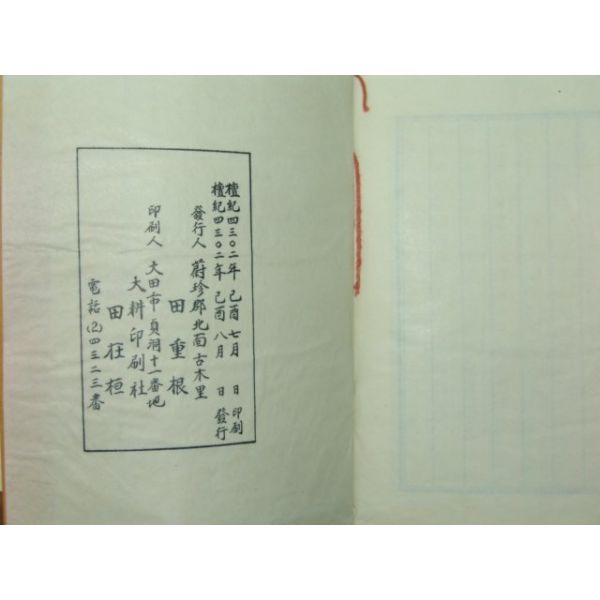 檀紀四三〇二年 己酉 七月 日 印刷
檀紀四三〇二年 己酉 八月 日 發行
發行人 蔚珍郡北面古木里
田重根
印刷人 大田市貞洞十一番地
大耕印刷社
田在桓
電話(2)四三二三番